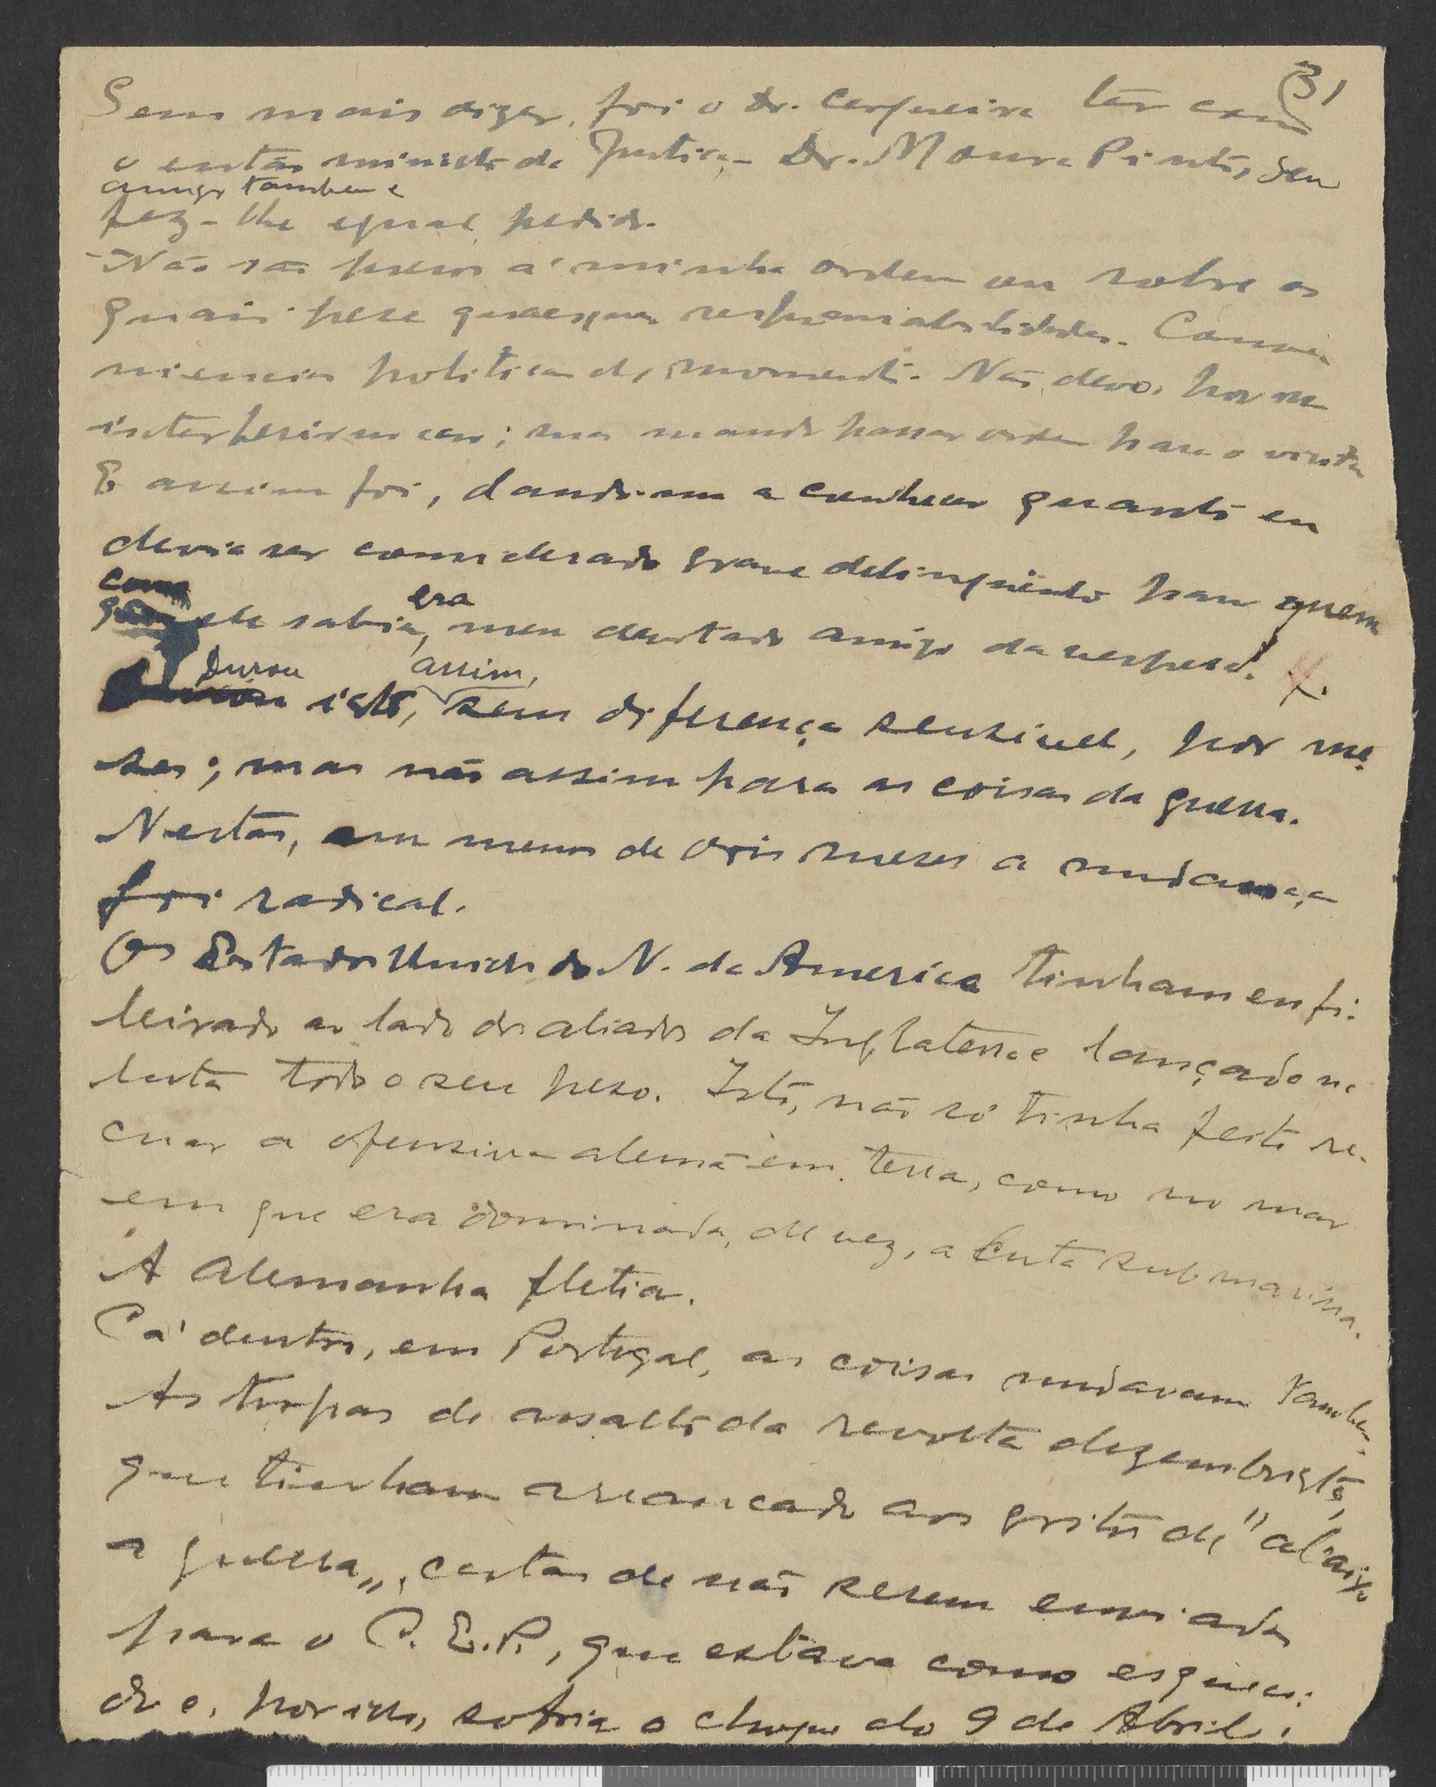 31
Sem mais dizer, foi o Dr. Cerqueira ter com
o então ministro da Justiça - Dr. Moura Pinto, seu
amigo tambem e
fez-lhe egual pedido.
- Não são presos á minha ordem ou sobre os
quais pese quaesquer responsabilidades. Conve-
niencias politicas do momento. Não devo, por
interferir; mas mando passar ordem para o
E assim foi, dando-me a conhecer quanto eu
devia ser considerado grave delinqüente para quem
como
ele sabia, era meu amigo da vespera!
Durou isto, assim, sem diferença sensivel, por me-
ses; mas não assim para as coisas da guerra.
Nestas, em menos de dois meses a mudança
foi radical.
Os Estados Unidos do N. da America tinham enfi-
leirado ao lado dos aliados da Inglaterra e lançado na
luta todo o seu peso. Isto, não só tinha feito re-
cuar a ofensiva alemã em terra, como no mar
em que era dominada, de vez, a luta submarina.
A Alemanha fletia.
Cá dentro, em Portugal, as coisas mudavam tambem.
As tropas de assalto da revolta dezembrista,
que tinham arrancado aos gritos de "abaixo
a guerra", certas de não serem enviadas
para o C. E. P., que estava como esqueci-
do e, por isso, sofria o choque do 9 de Abril,